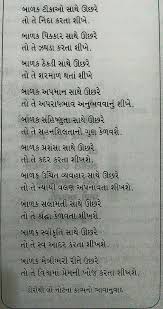 બાળક ટીકાઓ સાથે ઊછરે
તો તે નિંદા કરતા શીખે.
બાળક ધિક્કાર સાથે ઊછરે
તો તે ઝઘડા કરતાં શીખે.
બાળક ઠેકડી સાથે ઊછરે
તો તે શરમાળ થતાં શીખે.
બાળક અપમાન સાથે ઊછરે
તો તે અપરાધભાવ અનુભવવાનું શીખે.
બાળક સહિષ્ણુતા સાથે ઊછરે
તો તે સહનશીલતાનો ગુણ કેળવશે.
બાળક પ્રશંસા સાથે ઊછરે
તો તે કદર કરતા શીખશે.
બાળક ઉચિત વ્યવહાર સાથે ઊછરે
તો તે ન્યાયી વલણ અપનાવતા શીખશે.
બાળક સલામતી સાથે ઊછરે
તો તે શ્રદ્ધા કેળવતા શીખશે.
બાળક સ્વીકૃતિ સાથે ઊછરે
તો તે સ્વ આદર કરતા શીખશે.
બાળક મૈત્રીભરી રીતે ઊછરે
તો તે વિશ્વમાં પ્રેમની ખોજ કરતા શીખશે.
ડોરોથી લો નોલ્ટેના કાવ્યનો ભાવાનુવાદ